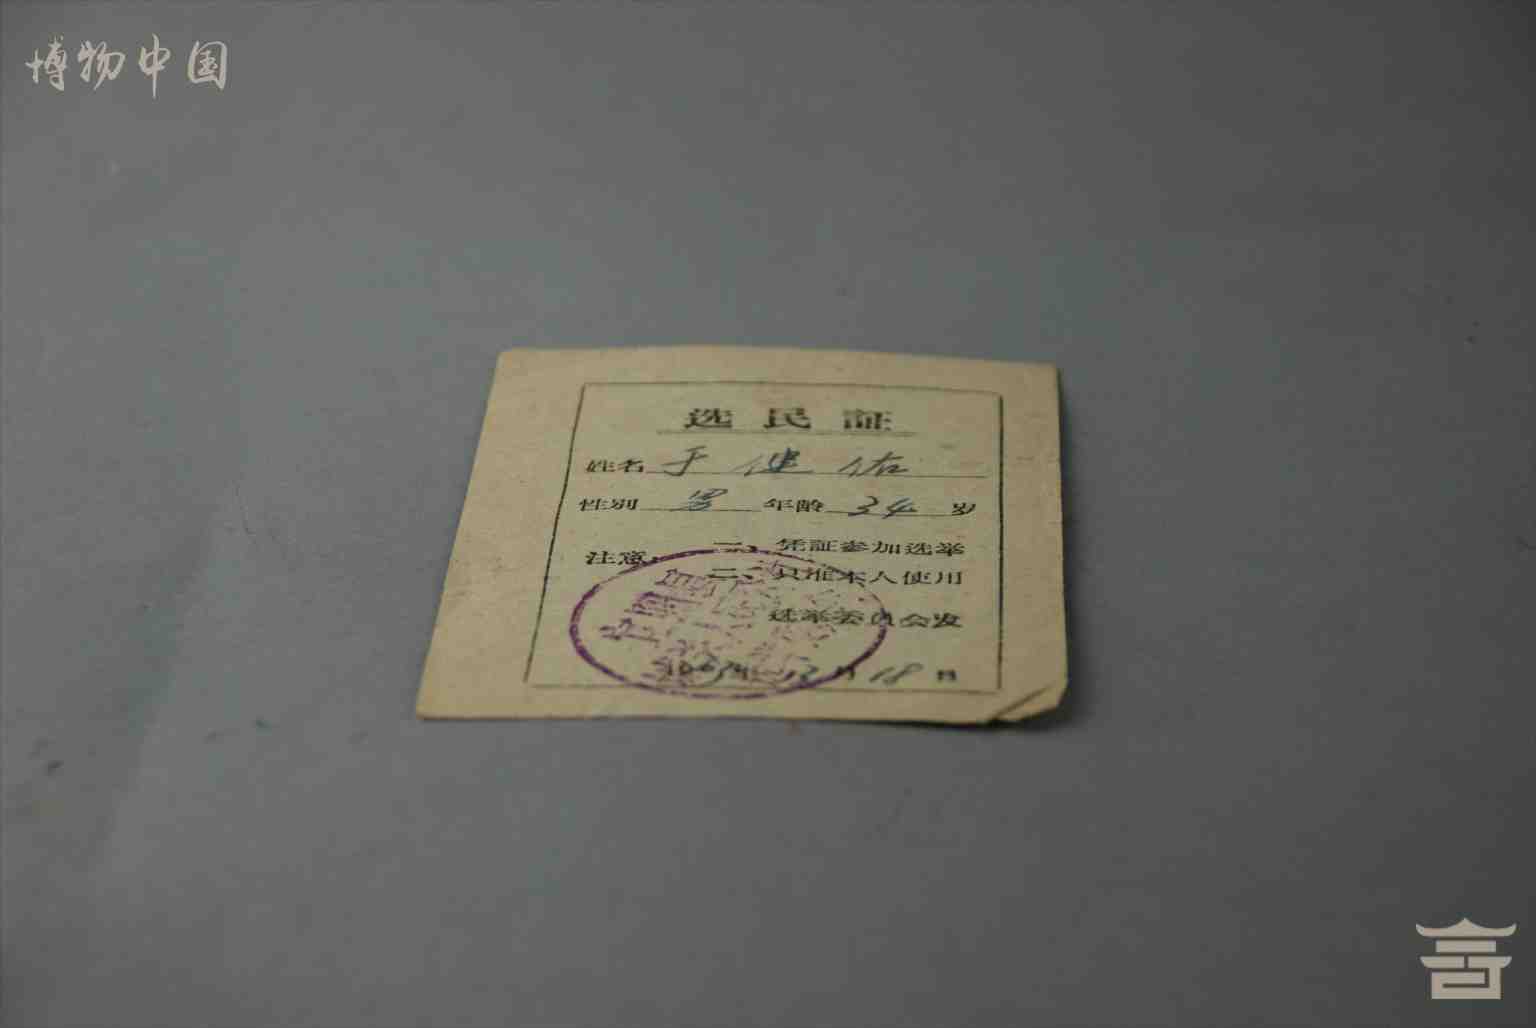 博物中国
选民証
姓名 于健佑
性别 男 年龄 34 岁
注意: 一、凭証参加选举
二、只准本人使用
选举委员会发
月18日